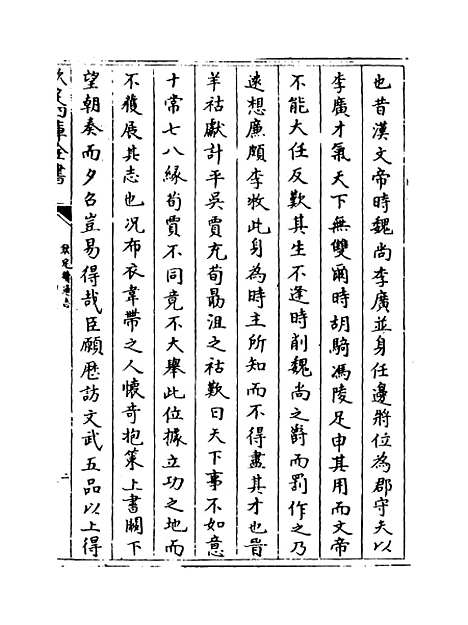 也昔漢文帝時魏尚李廣並身任邊將位為郡守夫以
李廣才氣天下無雙爾時胡騎馮陵足申其用而文帝
不能大任反歎其生不逢時削魏尚之爵而罰作之乃
遠想廉頗李牧此身為時主所知而不得盡其才也晉
羊祜獻計平吳賈充荀勗沮之祜歎曰天下事不如意
十常七八緣荀賈不同竟不大舉此位據立功之地而
不獲展其志也況布衣韋帶之人懷奇抱策上書闕下
望朝奏而夕召豈易得哉臣願歷訪文武五品以上得
欽定四庫全書
欽定續通志
二